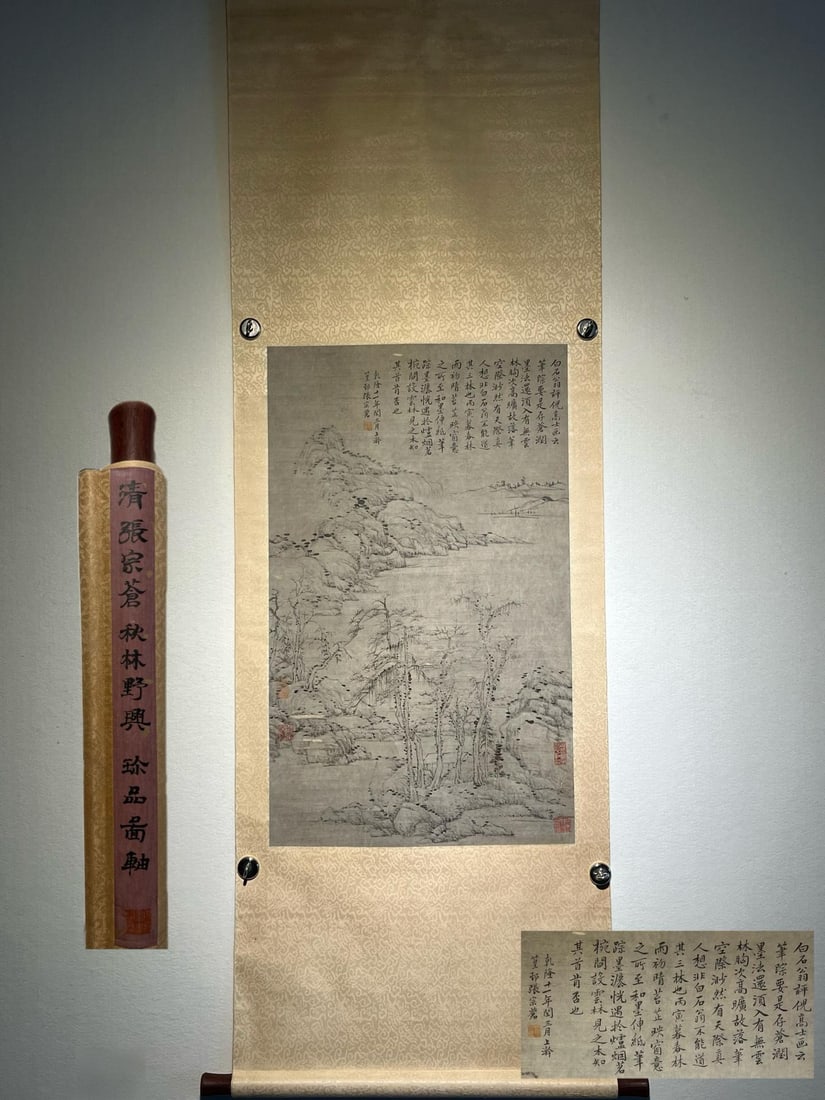 清張宗蒼秋林野興 珍品圖軸
白石翁評倪高士画云
筆踪要是存蒼潤
墨法還須入有無雲
林胸次高曠故落筆
空際渺然有天際真
人想非白石翁不能道
其三昧也丙寅暮春林
雨初晴苔芷映窗意
之所至和墨伸紙筆
踪墨瀋恍遇於壚烟茗
椀間設雲林見之未知
其首肯否也
乾隆十一年閏三月上澣
篁邨張宗蒼
白石翁評倪高士画云
筆踪要是存蒼潤
墨法還須入有無雲
林胸次高曠故落筆
空際渺然有天際真
人想非白石翁不能道
其三昧也丙寅暮春林
雨初晴苔芷映窗意
之所至和墨伸紙筆
踪墨瀋恍遇於壚烟茗
椀間設雲林見之未知
其首肯否也
乾隆十一年閏三月上澣
篁邨張宗蒼